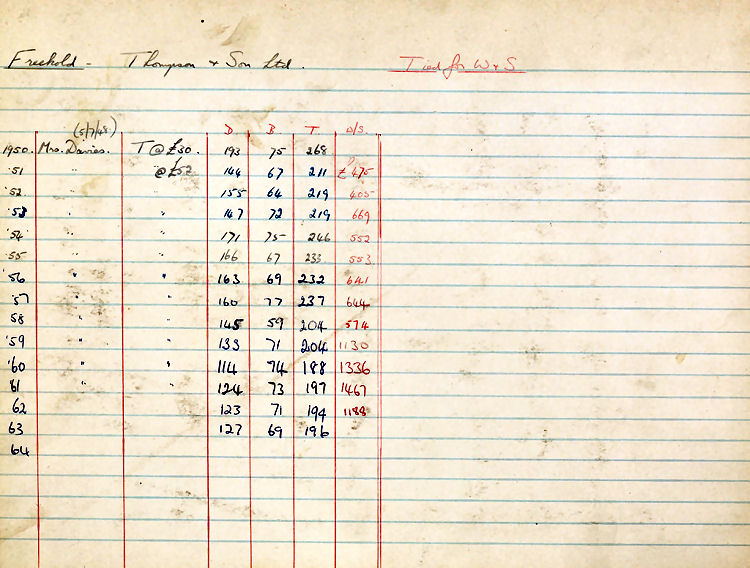 Freehold - Thompson & Son Ltd. Tied for W & S
(5/7/48) D B T O/S.
1950. Mrs. Davies. T @ £30. 193 75 268
'51 " @ £52 144 67 211 £475
'52 " " 155 64 219 405
'53 " " 147 72 219 669
'54 " " 171 75 246 552
'55 " " 166 67 233 553
'56 " " 163 69 232 641
'57 " " 160 77 237 644
58 " " 145 59 204 574
'59 " " 133 71 204 1130
'60 " " 114 74 188 1336
'61 " " 124 73 197 1467
62 123 71 194 1188
63 127 69 196
64